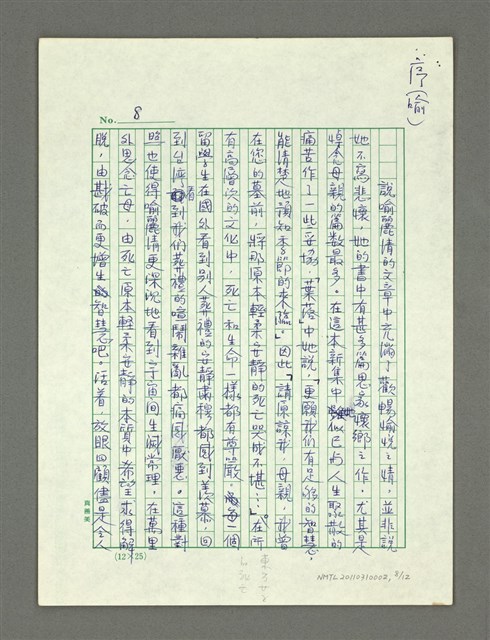 序(喻)
No. 8
說喻麗清的文章中充滿了歡暢愉悅之情，並非說
她不寫悲懷，她的書中有甚多篇思家懷鄉之作，尤其是
悼念母親的篇數最多。在這本新集中，她似已與人生聚散的
痛苦作了一些妥協，「葉落」中她說，「更願我們有足夠的智慧，
能清楚地預知季節的來臨。」因此，「請原諒我，母親，我曾
在您的墓前，將那原本輕柔安靜的死亡哭成不堪…」。在所
有高層次的文化中，死亡和生命一樣都有尊嚴，每一個
留學生在國外看到別人葬禮的安靜肅穆，都感到羨慕，回
到台灣看到我們葬禮的喧鬧雜亂都痛感厭惡。這種對
照也使得喻麗清更深沉地看到宇宙間生滅常理，在萬里
外思念亡母，由死亡原本輕柔安靜的本質中希望求得解
脫，由勘破而更增生智慧吧。活着，放眼四顧儘是令人
(12×25)
NMTL20110310002, 8/12